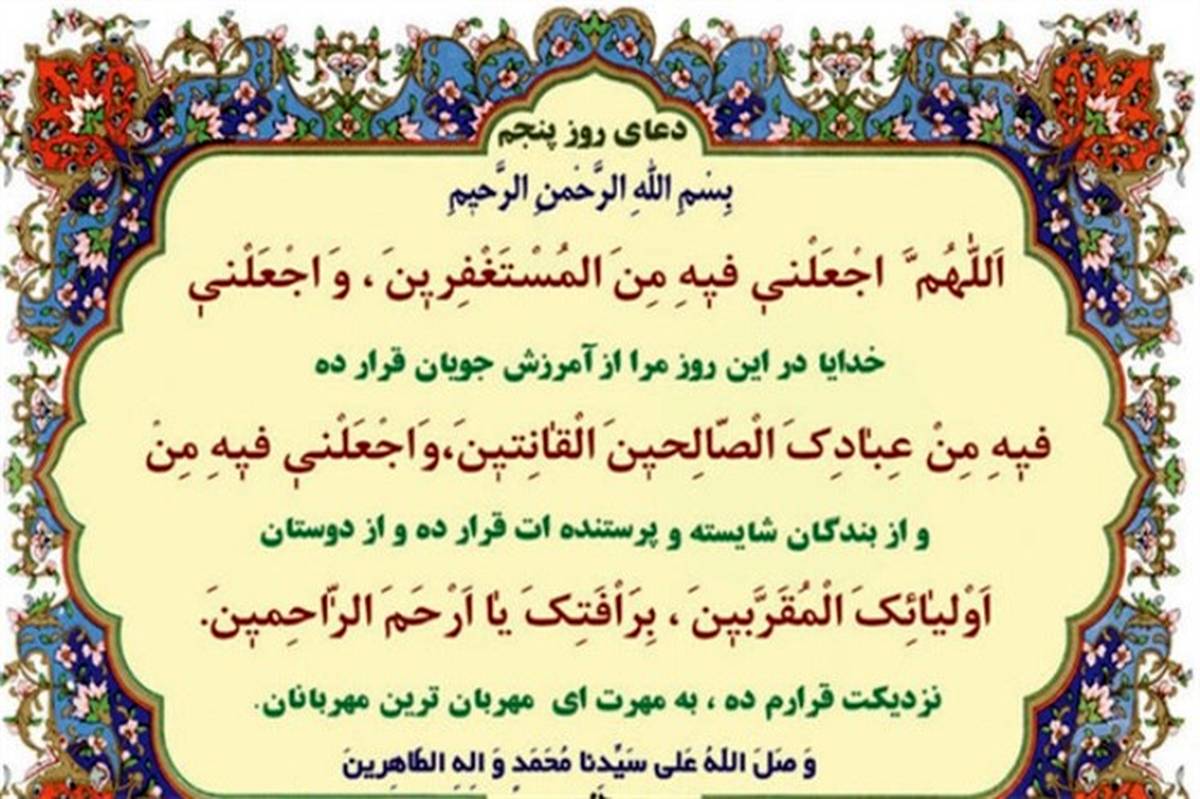 دعای روز پنجم
بِسْمِ اللهِ الرَّحْمنِ الرَّحیمِ
اَللّٰهُمَّ اجْعَلْنی فیهِ مِنَ المُسْتَغْفِرینَ، وَ اجْعَلْنی
خدایا در این روز مرا از آمرزش جویان قرار ده
فیهِ مِنْ عِبٰادِکَ الْصّالِحینَ الْقٰانِتینَ،وَاجْعَلْنی فیهِ مِنْ
و از بندگان شایسته و پرستنده ات قرار ده و از دوستان
اَوْلیٰائِکَ الْمُقَرَّبینَ ، بِرَاْفَتِکَ یٰا اَرْحَمَ الرّٰاحِمینَ.
نزدیکت قرارم ده ، به مهرت ای مهربان ترین مهربانان.
وَ صَلَ اللهُ عَلی سَیِّدِنا مُحَمَدٍ وَ الِهِ الطّاهِرینَ